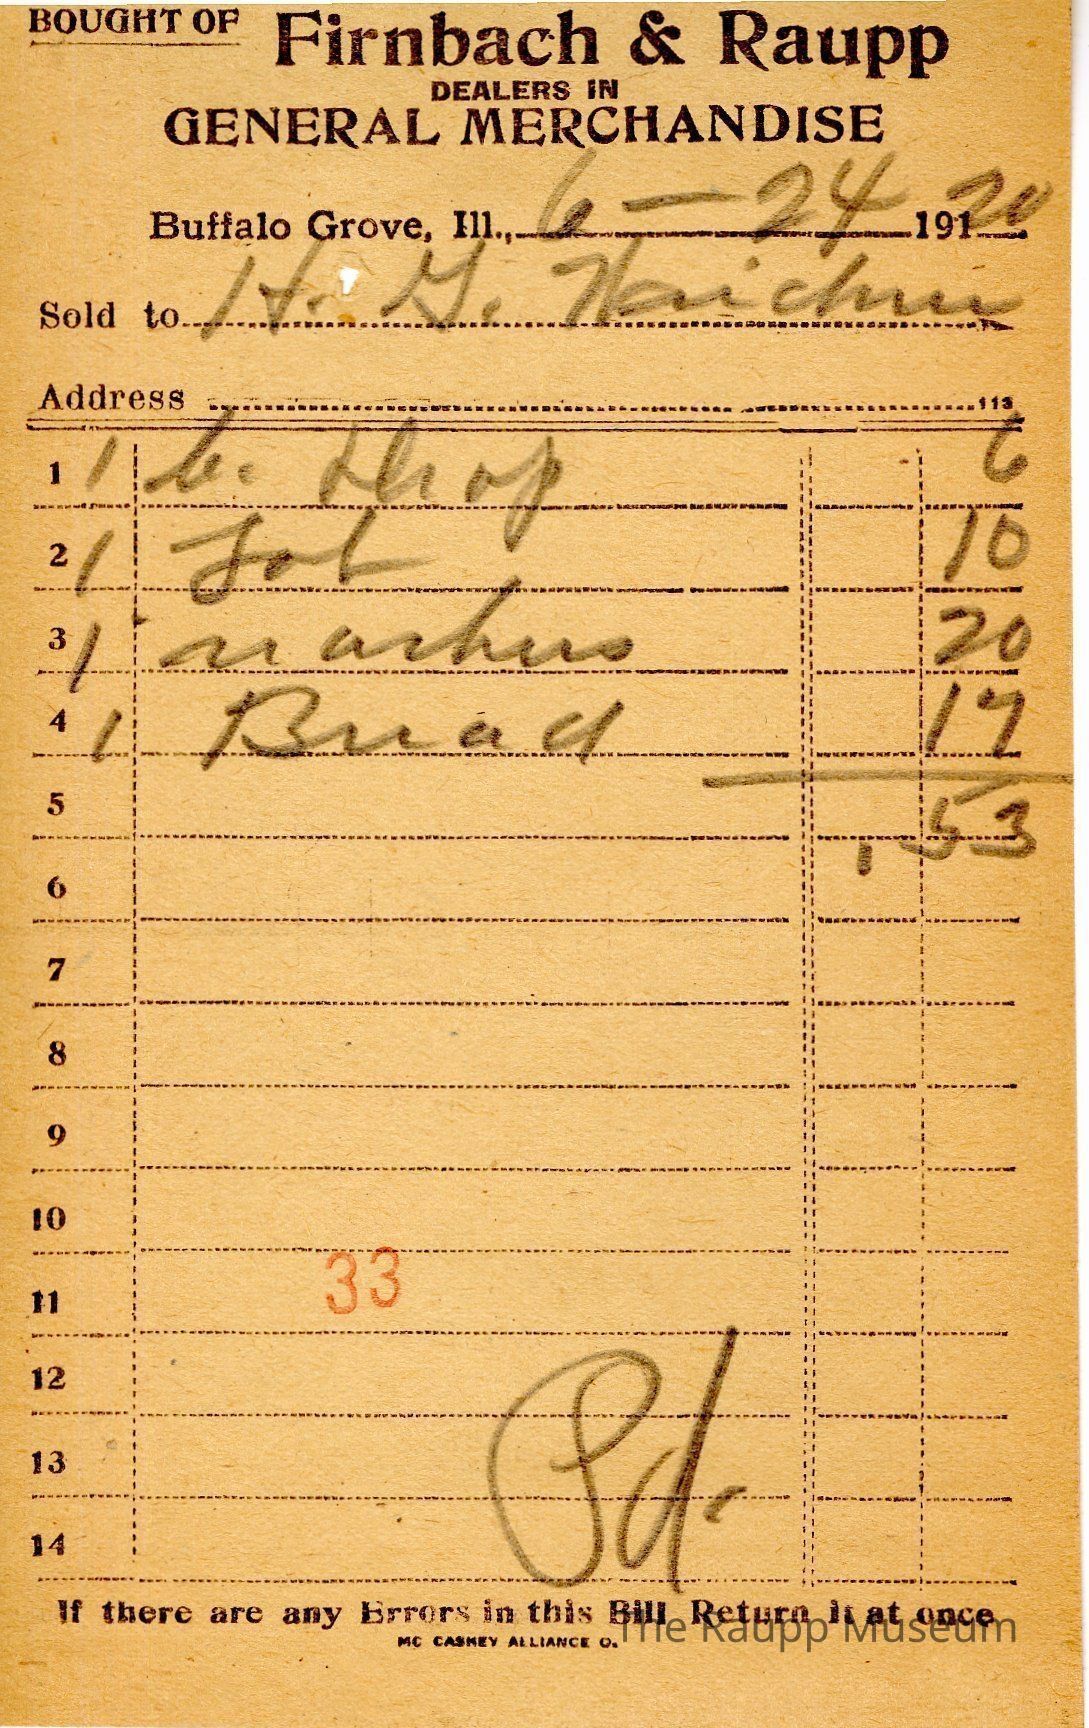 BOUGHT OF Firnbach & Raupp
DEALERS IN
GENERAL MERCHANDISE
Buffalo Grove, Ill., 6-24 19120
Sold to H. G.
Address 113
1 1 6
2 1 10
3 1 20
4 1 Bread 17
5 .53
6
7
8
9
10
33
11
12
13 Pd.
14
If there are any Errors in this Bill Return it at once
MC CASKEY ALLIANCE O.
The Raupp Museum